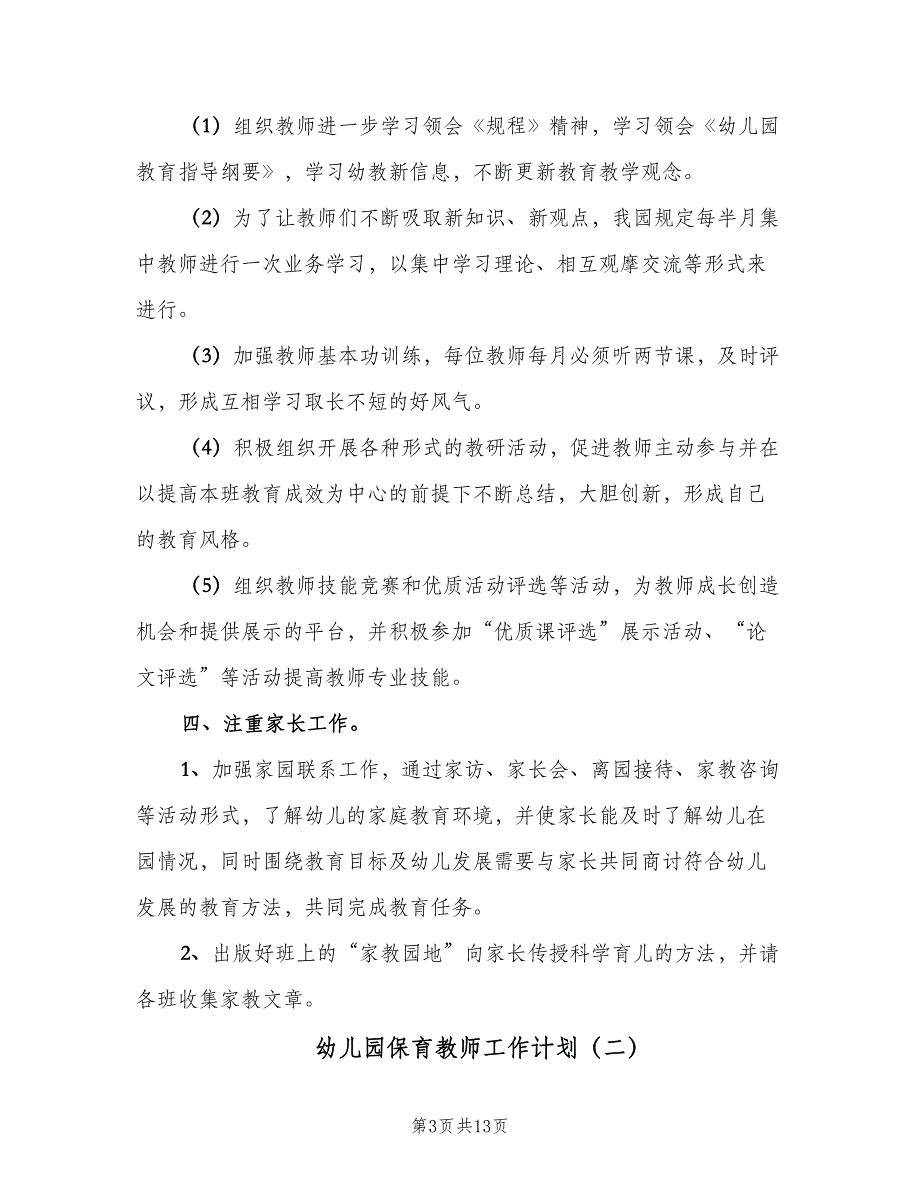 (1) 组织教师进一步学习领会《规程》精神，学习领会《幼儿园
教育指导纲要》，学习幼教新信息，不断更新教育教学观念。
(2) 为了让教师们不断吸取新知识、新观点，我园规定每半月集
中教师进行一次业务学习，以集中学习理论、相互观摩交流等形式来
进行。
(3) 加强教师基本功训练，每位教师每月必须听两节课，及时评
议，形成互相学习取长不短的好风气。
(4) 积极组织开展各种形式的教研活动，促进教师主动参与并在
以提高本班教育成效为中心的前提下不断总结，大胆创新，形成自己
的教育风格。
(5) 组织教师技能竞赛和优质活动评选等活动，为教师成长创造
机会和提供展示的平台，并积极参加“优质课评选”展示活动、“论
文评选”等活动提高教师专业技能。
四、注重家长工作。
1、加强家园联系工作，通过家访、家长会、离园接待、家教咨询
等活动形式，了解幼儿的家庭教育环境，并使家长能及时了解幼儿在
园情况，同时围绕教育目标及幼儿发展需要与家长共同商讨符合幼儿
发展的教育方法，共同完成教育任务。
2、出版好班上的“家教园地”向家长传授科学育儿的方法，并请
各班收集家教文章。
幼儿园保育教师工作计划（二）
第3页共13页